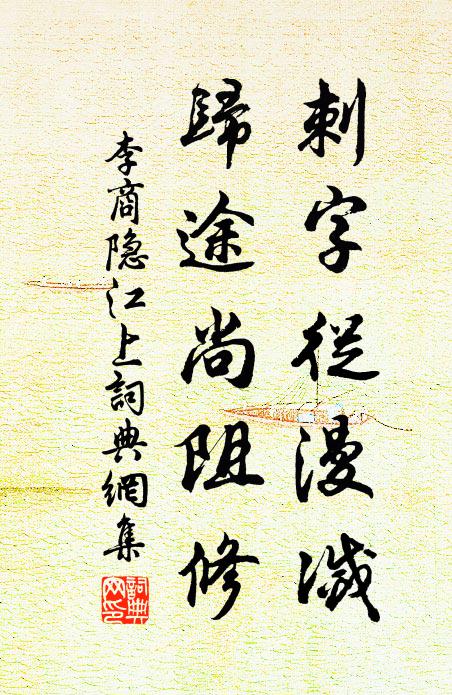 刺字從漫滅
歸途尚阻修
李商隐江上詞典網集
詞典
网印